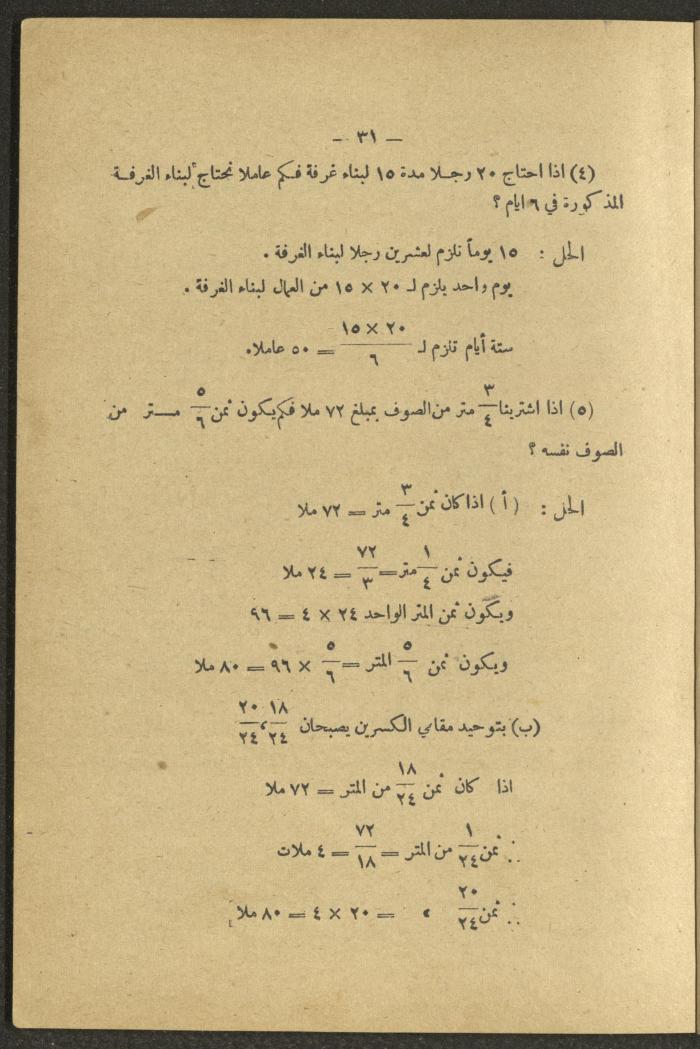 — ٣١ —
(٤) اذا احتاج ٢٠ رجلا مدة ١٥ لبناء غرفة فكم عاملا نحتاج لبناء الغرفة
المذكورة في ٦ ايام ؟
الحل : ١٥ يوماً تلزم لعشرين رجلا لبناء الغرفة .
يوم واحد يلزم لـ ٢٠ × ١٥ من العمال لبناء الغرفة .
ستة أيام تلزم لـ ٢٠ × ١٥ / ٦ = ٥٠ عاملا.
(٥) اذا اشترينا ٣/٤ متر من الصوف بمبلغ ٧٢ ملا فكم يكون ثمن ٥/٦ متر من
الصوف نفسه ؟
الحل : ( أ ) اذا كان ثمن ٣/٤ متر = ٧٢ ملا
فيكون ثمن ١/٤ متر = ٧٢/٣ = ٢٤ ملا
ويكون ثمن المتر الواحد ٢٤ × ٤ = ٩٦
ويكون ثمن ٥/٦ المتر = ٥/٦ × ٩٦ = ٨٠ ملا
(ب) بتوحيد مقامي الكسرين يصبحان ١٨/٢٤ ، ٢٠/٢٤
اذا كان ثمن ١٨/٢٤ من المتر = ٧٢ ملا
∴ ثمن ١/٢٤ من المتر = ٧٢/١٨ = ٤ ملات
∴ ثمن ٢٠/٢٤ ، = ٢٠ × ٤ = ٨٠ ملا